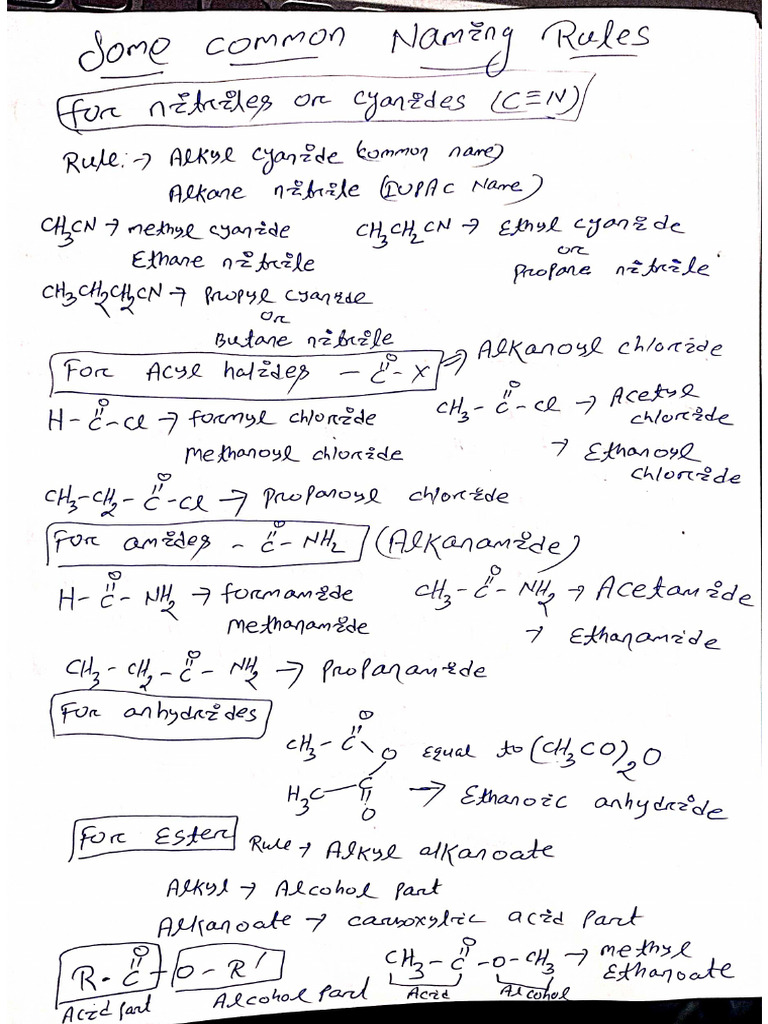 Some common Naming Rules
For nitriles or cyanides (C≡N)
Rule:→ Alkyl cyanide (common name)
Alkane nitrile (IUPAC Name)
CH₃CN → methyl cyanide
Ethane nitrile
CH₃CH₂CN → Ethyl cyanide
or
Propane nitrile
CH₃CH₂CH₂CN → Propyl cyanide
or
Butane nitrile
For Acyl halides - C(=O) - X ⇒ Alkanoyl chloride
H - C(=O) - Cl → formyl chloride
methanoyl chloride
CH₃ - C(=O) - Cl → Acetyl chloride
→ Ethanoyl chloride
CH₃-CH₂ - C(=O) - Cl → Propanoyl chloride
For amides - C(=O) - NH₂ (Alkanamide)
H - C(=O) - NH₂ → formamide
methanamide
CH₃ - C(=O) - NH₂ → Acetamide
→ Ethanamide
CH₃ - CH₂ - C(=O) - NH₂ → Propanamide
For anhydrides
CH₃ - C(=O) \ O equal to (CH₃CO)₂O
H₃C - C(=O) / → Ethanoic anhydride
For Ester Rule → Alkyl alkanoate
Alkyl → Alcohol part
Alkanoate → carboxylic acid part
R - C(=O) - O - R'
Acid part Alcohol part
CH₃ - C(=O) - O - CH₃ → methyl Ethanoate
Acid Alcohol